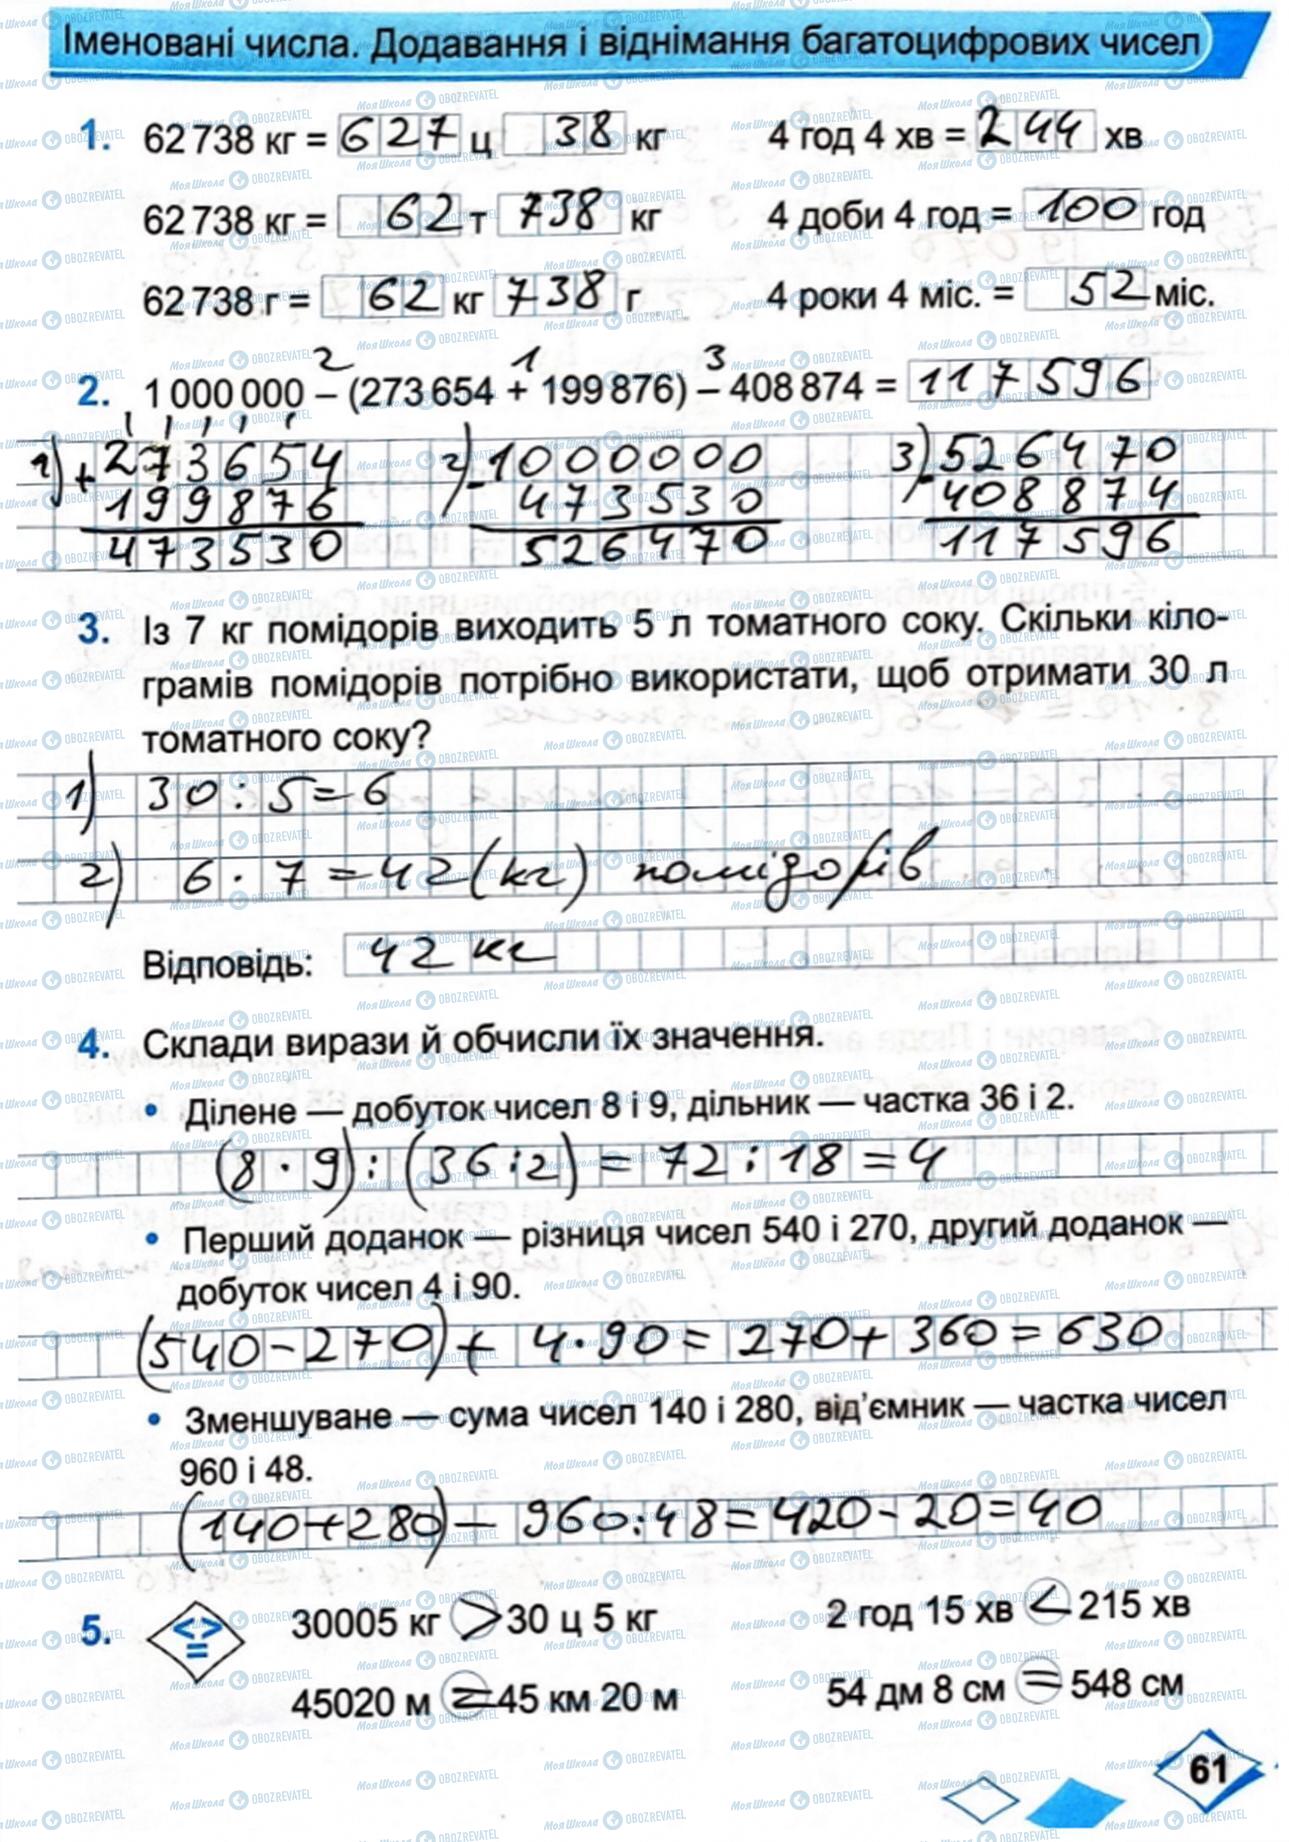 Іменовані числа. Додавання і віднімання багатоцифрових чисел
1. 62 738 кг = 627 ц 38 кг 4 год 4 хв = 244 хв
62 738 кг = 62 т 738 кг 4 доби 4 год = 100 год
62 738 г = 62 кг 738 г 4 роки 4 міс. = 52 міс.
2 1 3
2. 1 000 000 – (273 654 + 199 876) – 408 874 = 117 596
1) + 273654 2) - 1000000 3) - 526470
199876 473530 408874
473530 526470 117596
3. Із 7 кг помідорів виходить 5 л томатного соку. Скільки кіло-
грамів помідорів потрібно використати, щоб отримати 30 л
томатного соку?
1) 30 : 5 = 6
2) 6 · 7 = 42 (кг) помідорів
Відповідь: 42 кг
4. Склади вирази й обчисли їх значення.
• Ділене — добуток чисел 8 і 9, дільник — частка 36 і 2.
(8 · 9) : (36 : 2) = 72 : 18 = 4
• Перший доданок — різниця чисел 540 і 270, другий доданок —
добуток чисел 4 і 90.
(540 - 270) + 4 · 90 = 270 + 360 = 630
• Зменшуване — сума чисел 140 і 280, від’ємник — частка чисел
960 і 48.
(140 + 280) - 960 : 48 = 420 - 20 = 40
5. < > = 30005 кг > 30 ц 5 кг 2 год 15 хв < 215 хв
45020 м = 45 км 20 м 54 дм 8 см = 548 см
61
МояШкола OBOZREVATEL